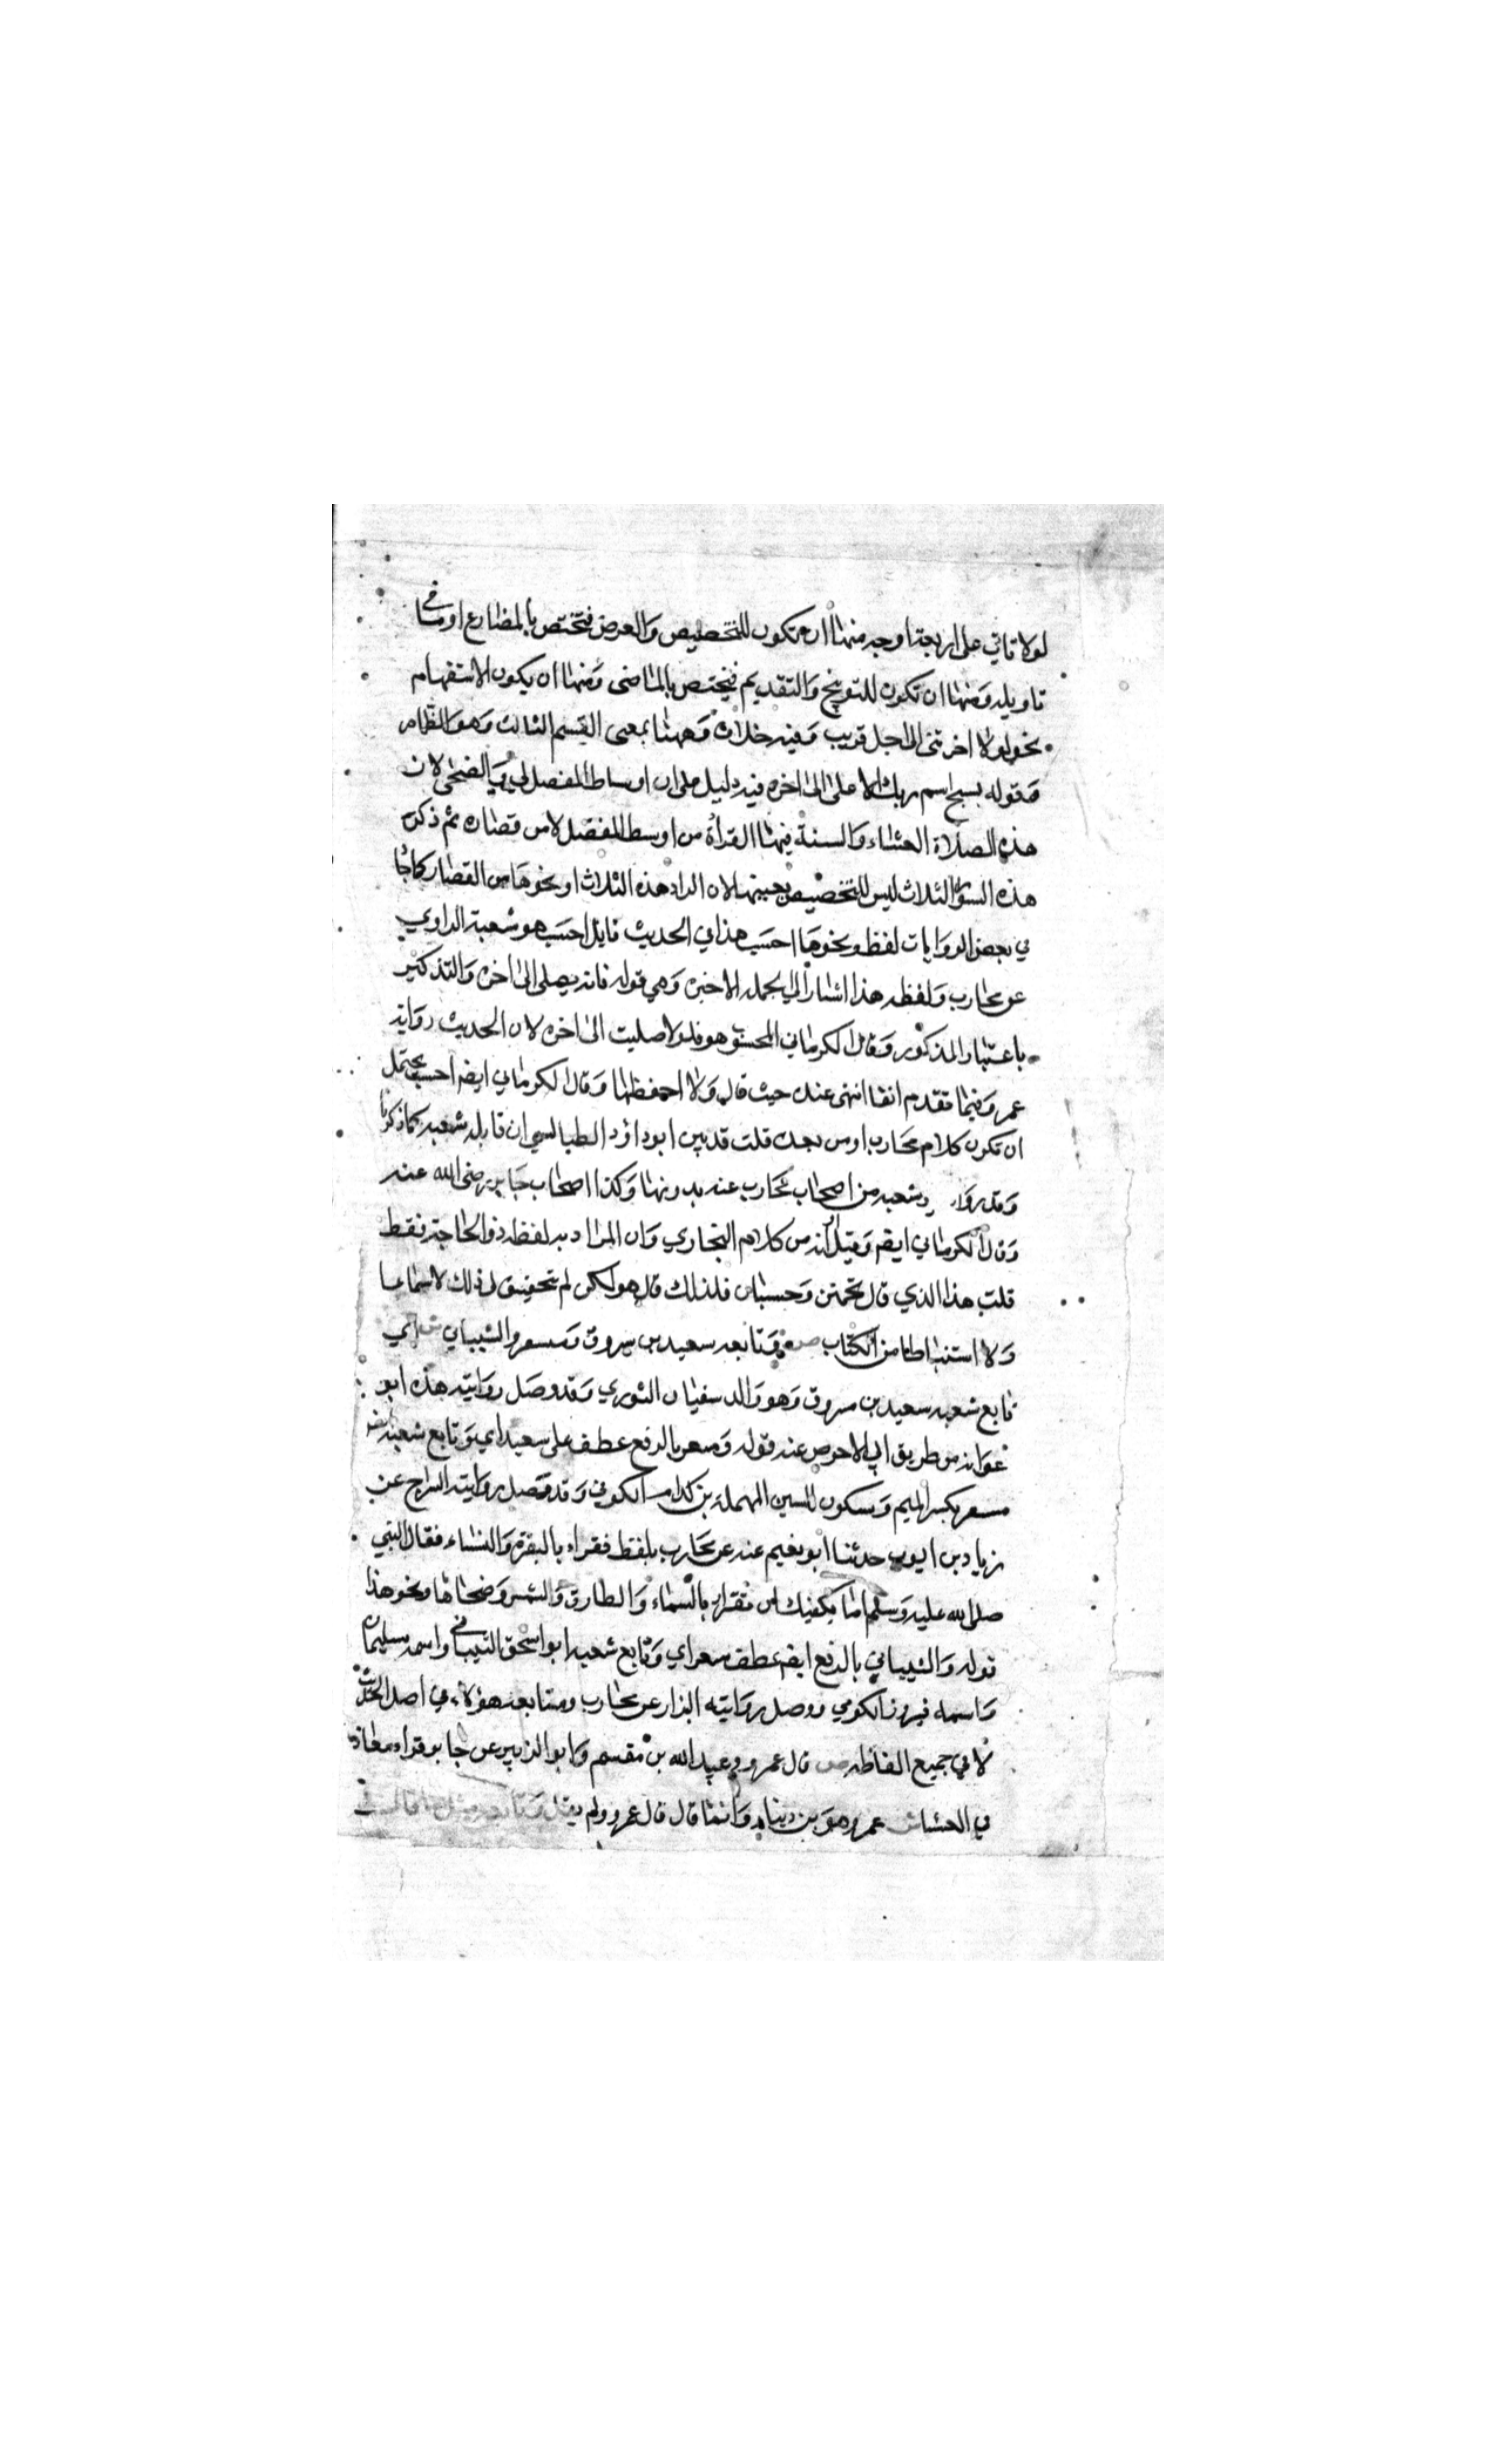 لولا تاتي على اربعة اوجه منها ان تكون للتحضيض والعرض فتختص بالمضارع او ما في
تاويله ومنها ان تكون للتوبيخ والتقديم فيختص بالماضى ومنها ان يكون للاستفهام
نحو لولا اخرتنى الى اجل قريب وفيه خلاف وههنا بمعنى القسم الثالث وهو الظاهر
وقوله بسبح اسم ربك الاعلى الى اخره فيه دليل على ان اوساط المفصل الى والضحى لان
هذه الصلاة العشاء والسنة فيها القراة من اوسط المفصل لا من قصاره ثم ذكر
هذه السور الثلاث ليس للتخصيص بعينها لان المراد هذه الثلاث او نحوها من القصار كما جا
في بعض الروايات لفظ ونحوها احسب هذا في الحديث قايل احسب هو شعبة الراوي
عن محارب ولفظه هذا اشار الي الجمله الاخيره وهي قوله فانه يصلى الى اخره والتذكير
باعتبار المذكور وقال الكرماني المحسوب هو فلولا صليت الى اخره لان الحديث رواية
عمرو فيما تقدم انفا انتهى عنده حيث قال ولا احفظها وقال الكرماني ايضا احسب يحتمل
ان تكون كلام محارب او من بعده قلت قد بين ابو داود الطيالسي ان قايله شعبه كما ذكرنا
وقد رواه شعبه من اصحاب محارب عنه بدونها وكذا اصحاب جابر رضى الله عنه
وقال الكرماني ايضا وقيل انه من كلام البخاري وان المراد به لفظه ذو الحاجة فقط
قلت هذا الذي قال تخمين وحسبان فلذلك قال هو لكن لم يتحقق لى ذلك لا سماعا
ولا استنباطا من الكتاب ص وتابعه سعيد بن مسروق ومسعر والشيباني ش اي
تابع شعبه سعيد بن مسروق وهو والد سفيان الثوري وقد وصل روايته هذه ابو
عوانه من طريق ابي الاحوص عنه قوله ومسعر بالرفع عطف على سعيد اي وتابع شعبه ايضا
مسعر بكسر الميم وسكون السين المهملة بن كدام الكوفي وقد وصل روايته السراج عن
زياد بن ايوب حدثنا ابو نعيم عنه عن محارب بلفظ فقراء بالبقرة والنساء فقال النبي
صلى الله عليه وسلم اما يكفيك ان تقراء بالسماء والطارق والشمس وضحاها ونحو هذا
قوله والشيباني بالرفع ايضا عطف مسعر اي وتابع شعبه ابو اسحق الشيباني واسمه سليمان
واسمه فيروز الكوفي ووصل روايته البزار عن محارب ومتابعه هؤلاء في اصل الحديث
لا في جميع الفاظه ص قال عمرو وعبيد الله بن مقسم وابو الزبير عن جابر قراء معاذ
في العشا ش عمرو هو بن دينار وانما قال قال عمرو ولم يقل وتابعه